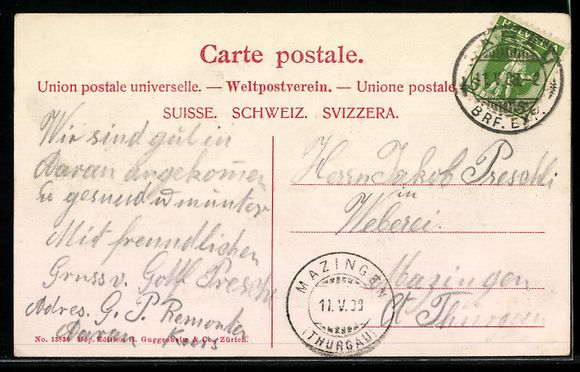 Carte postale.
Union postale universelle. — Weltpostverein. — Unione postale
SUISSE. SCHWEIZ. SVIZZERA.
HELVETIA
11.V.
BRF. EXP.
Wir sind gut in
Aarau angekommen
gesund u munter
Mit freundlichen
Gruss v. Gottf Preschli
Adres. G. P. Remonten
Aarau Kurs
Herrn Jakob Preschli
in
Weberei.
Mazingen
Ct Thurgau
MAZINGEN
11.V.09
(THURGAU)
No. 13839 Dép. Edition H. Guggenheim & Co., Zürich.